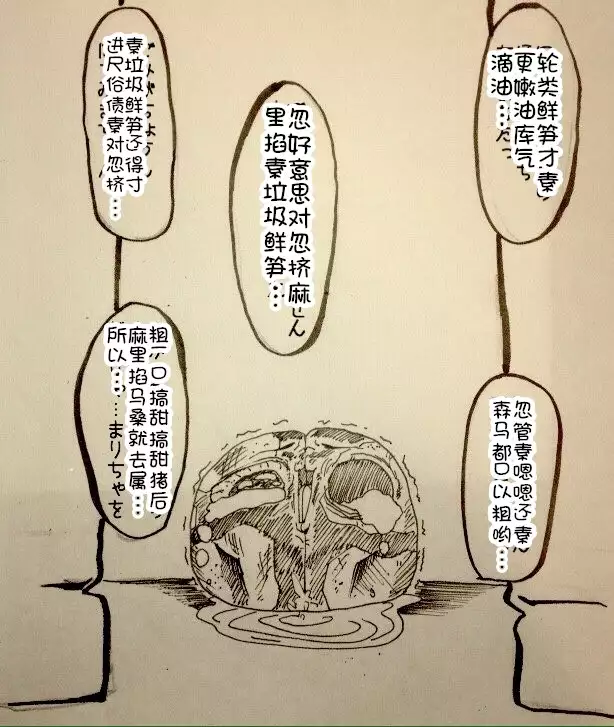 轮类鲜笋才素
更嫩油库气
滴油…
忽管素嗯嗯还素
森马都口以粗哟…
忽好意思对忽挤麻
里掐素垃圾鲜笋…
せん
素垃圾鲜笋还得寸
进尺俗债素对忽挤…
粗口搞甜搞甜猪后
麻里掐马桑就去属…
所以……まりちゃを